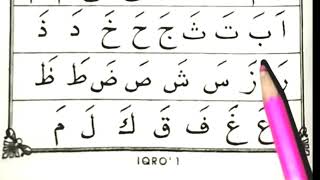 اَ بَ تَ ثَ جَ حَ خَ دَ ذَ
رَ زَ سَ شَ صَ ضَ طَ ظَ
عَ غَ فَ قَ كَ لَ مَ
IQRO' 1